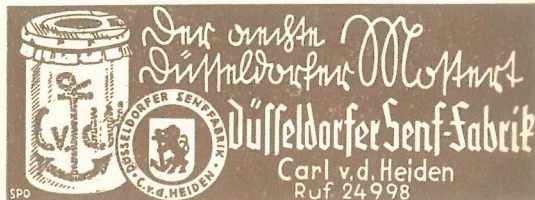 Der aechte
Düsseldorfer Mostert
Düsseldorfer Senf-Fabrik
Carl v.d. Heiden
Ruf 24998
C.v.d.H.
DÜSSELDORFER SENFFABRIK
C.v.d.HEIDEN
SPO